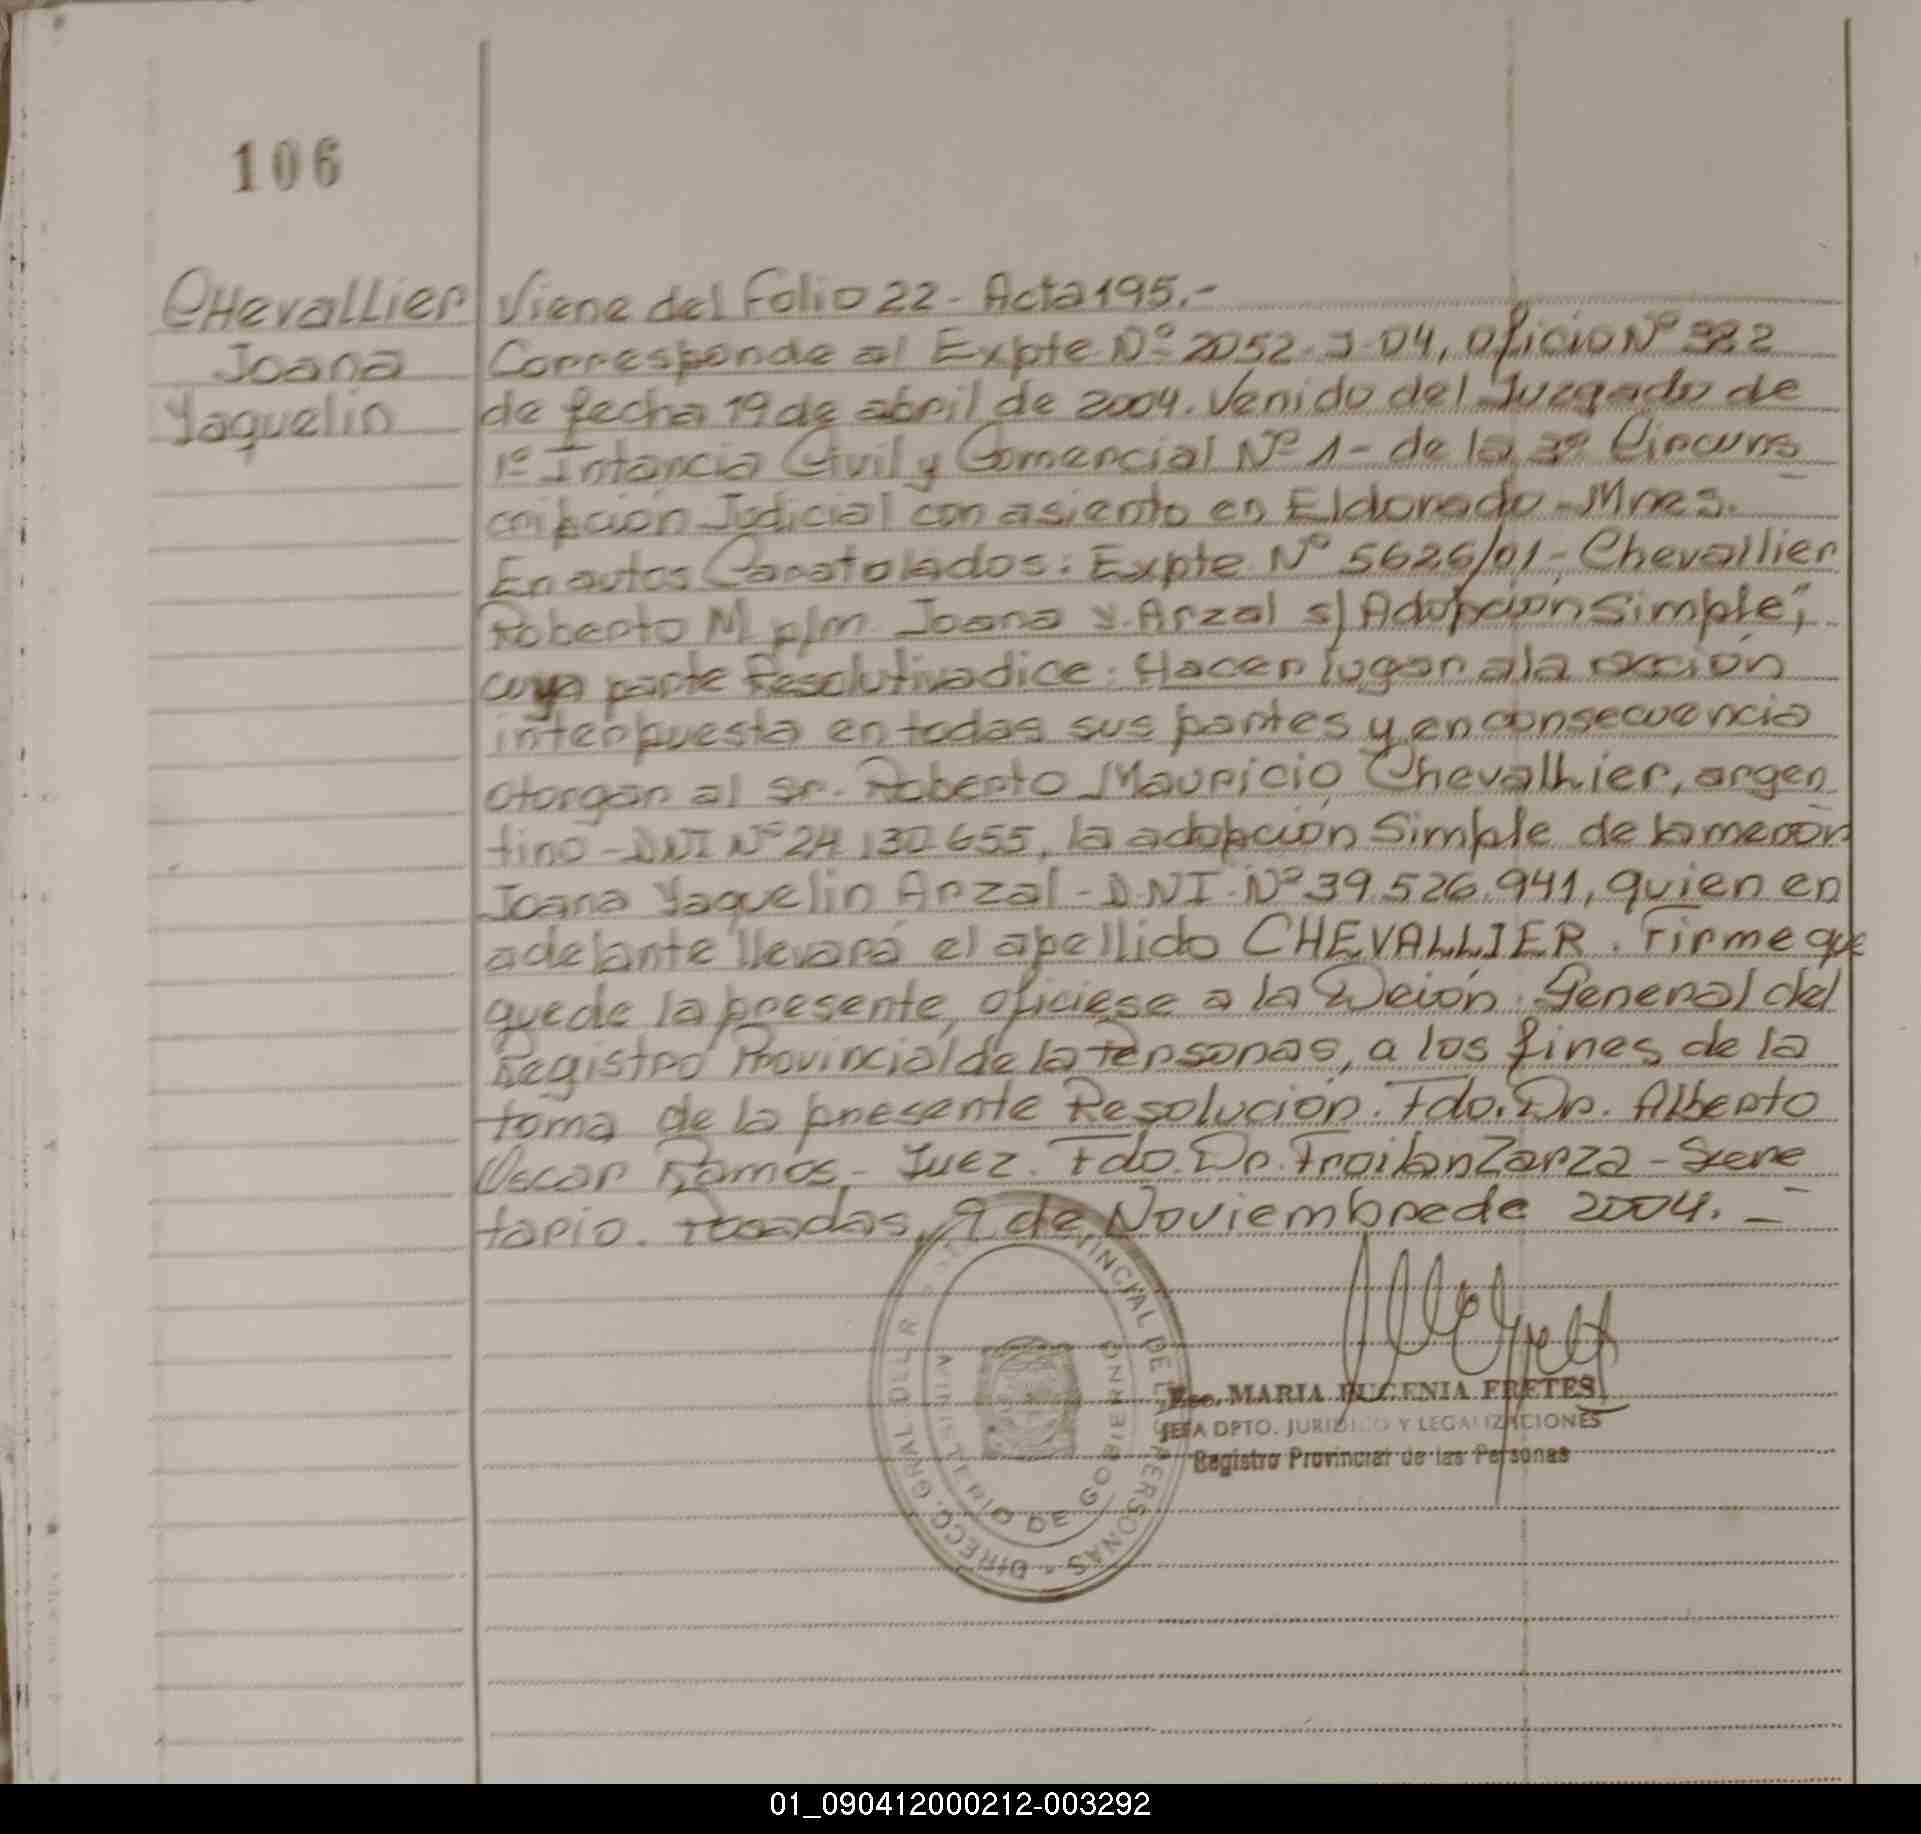 106
CHevallier
Joana
Yaquelin
Viene del Folio 22 - Acta 195.-
Corresponde al Expte Nº 2052-J-04, oficio Nº 382
de fecha 19 de abril de 2004. Venido del Juzgado de
1º Intancia Civil y Comercial Nº 1 - de la 3º Circuns
cripción Judicial con asiento en Eldorado - Mnes.
En autos Caratolados: Expte Nº 5626/01 - Chevallier
Roberto M p/m Joana Y. Arzal s/ Adopcion Simple",
cuya parte Resolutiva dice: Hacer lugar a la accion
interpuesta en todas sus partes y en consecuencia
otorgar al Sr. Roberto Mauricio Chevallier, argen
tino - DNI Nº 24.130.655, la adopción Simple de la menor
Joana Yaquelin Arzal - D.N.I. Nº 39.526.941, quien en
adelante llevará el apellido CHEVALLIER. Firme que
quede la presente, oficiese a la Dción. General del
Registro Provincial de la Personas, a los fines de la
toma de la presente Resolución. Fdo. Dr. Alberto
Oscar Ramos - Juez. Fdo. Dr. Froilan Zarza - Secre
tario. Posadas, 9 de Noviembre de 2004. -
Esc. MARIA EUGENIA FRETES
JEFA DPTO. JURIDICO Y LEGALIZACIONES
Registro Provincial de las Personas
DIRECC. GRAL. DEL R PROVINCIAL DE LAS PERSONAS
MINISTERIO DE GOBIERNO
01_090412000212-003292